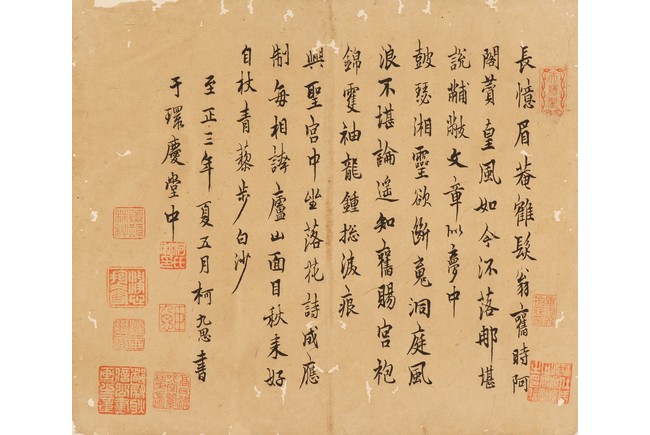 長憶眉菴雪鬢翁舊時阿
閣賛皇風如今流落那堪
說黼黻文章似夢中
鼓瑟湘靈欲斷魂洞庭風
浪不堪論遥知舊賜宮袍
錦雙袖龍鍾揔淚痕
興聖宮中坐落花詩成應
制每相誇廬山面目秋来好
自杖青藜步白沙
至正三年夏五月柯九思書
于環慶堂中